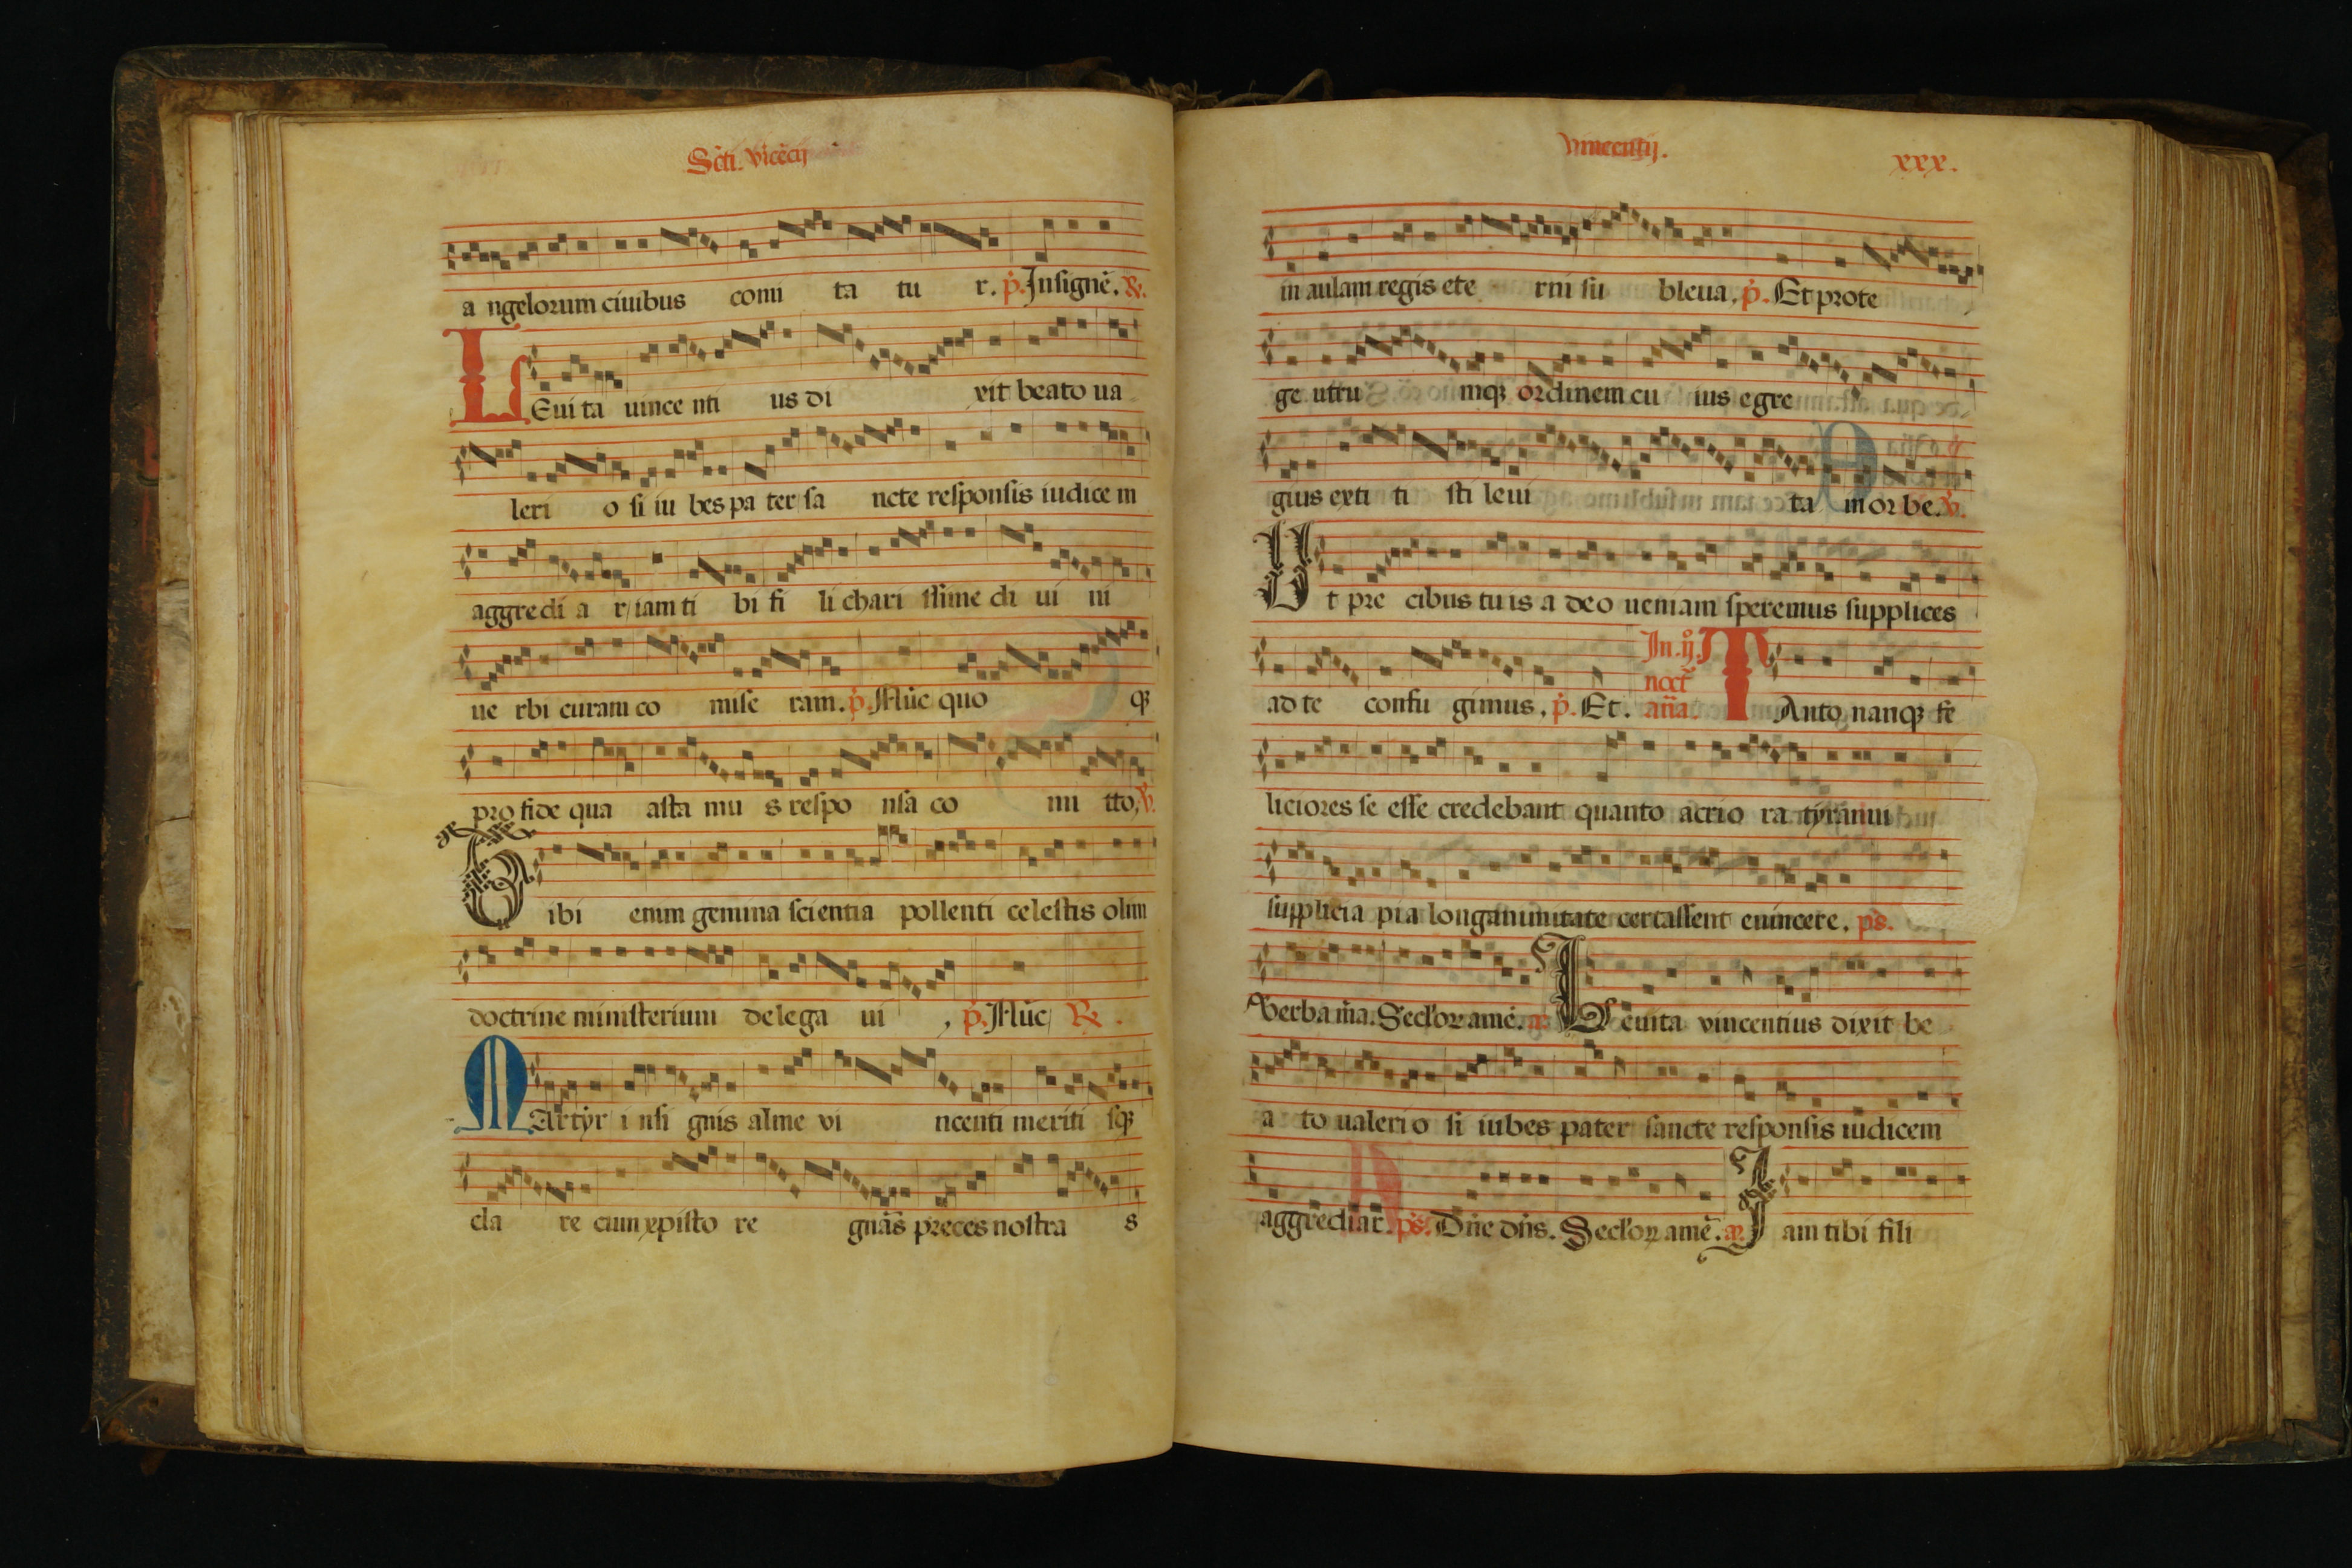 Sc̄ti. vīcēcij
a ngelorum ciuibus comi ta tu r. p̄. Insignē. ℟.
LEui ta uince nti us di xit beato ua
leri o si iu bes pa ter sa ncte responsis iudice m
aggredi a r iam ti bi fi li chari ssime di ui ni
ue rbi curam co mise ram. p̄. Nūc quo qꝫ
pro fide qua asta mu s respo nsa co mi tto, ℣.
Tibi enim gemina scientia pollenti celestis olim
doctrine ministerium delega ui , p̄. Nūc ℟.
MArtyr i nsi gnis alme vi ncenti meriti sqꝫ
cla re cum xp̄isto re gnās preces nostra s
vincentij. xxx.
in aulam regis ete rni su bleua, p̄. Et prote
ge utru mqꝫ ordinem cu ius egre
gius exti ti sti leui ta in or be. ℣.
Vt pre cibus tu is a deo ueniam speremus supplices
ad te confu gimus, p̄. Et. In. ij. noct̄ an̄a. TAnto nanqꝫ fe
liciores se esse credebant quanto acrio ra tyranni
supplicia pia longanimitate certassent euincere, ps.
Verba m̄a. Sec̄loꝝ amē. Leuita vincentius dixit be
a to ualeri o si iubes pater sancte responsis iudicem
aggrediar. ps. Dn̄e dn̄s. Sec̄loꝝ amē. Iam tibi fili